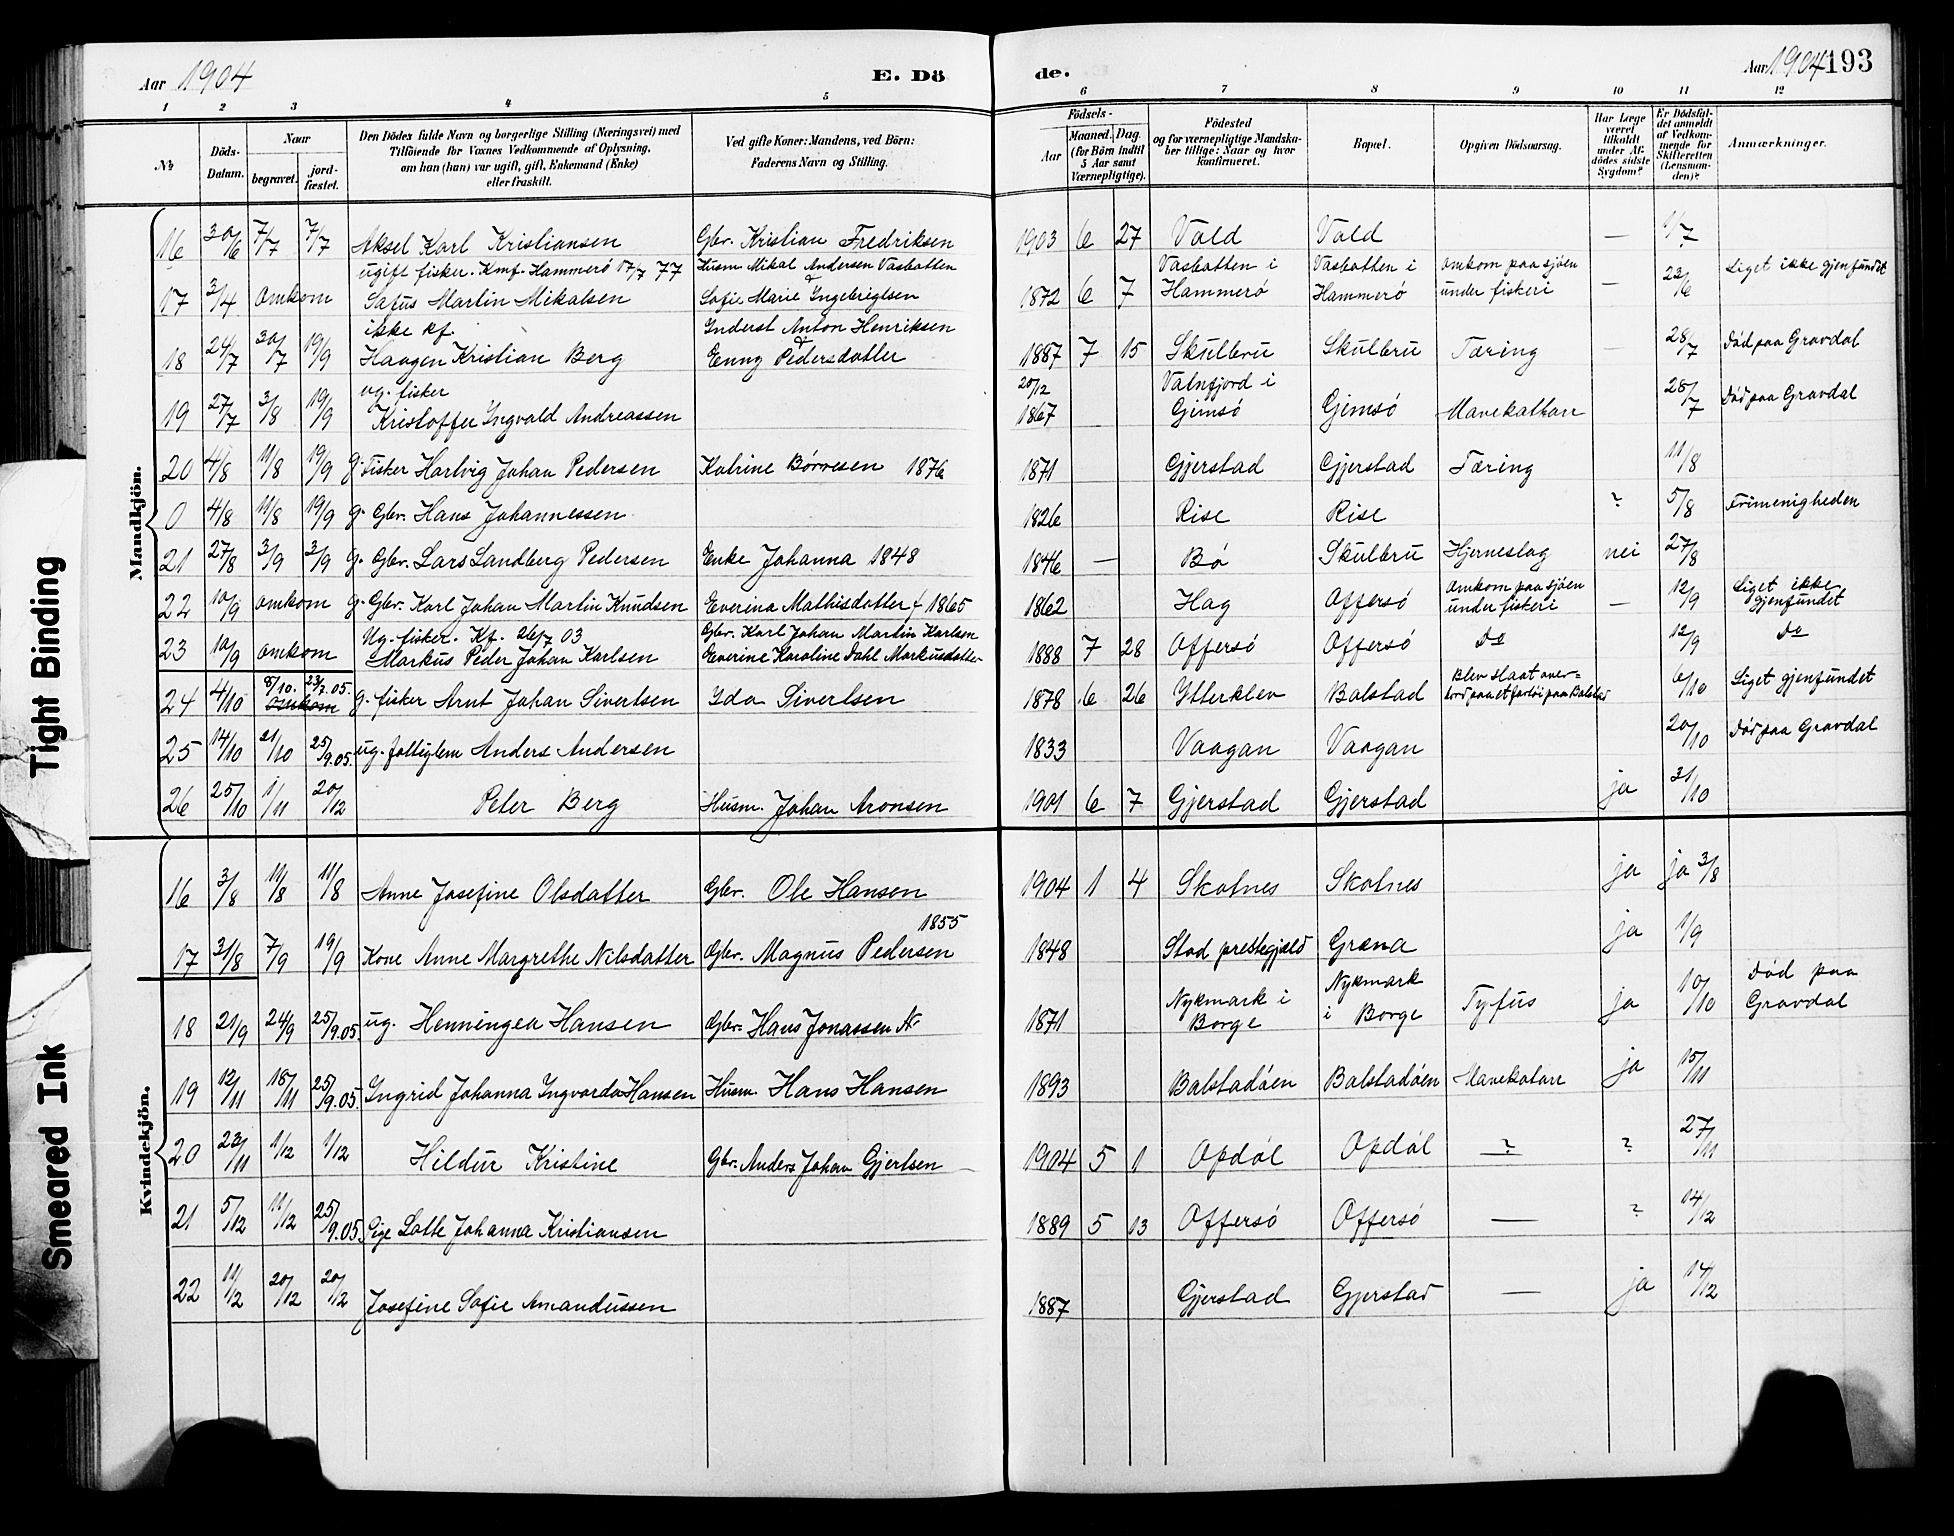 Aar 1904
E. Dö
de.
Aar 1904 193
1 2 3 4 5 6 7 8 9 10 11 12
№
Döds-Datum.
Naar
begravet.
jordfæstet.
Den Dödes fulde Navn og borgerlige Stilling (Næringsvei) med
Tilföiende for Voxnes Vedkommende af Oplysning,
om han (hun) var ugift, gift, Enkemand (Enke)
eller fraskilt.
Ved gifte Koner: Mandens, ved Börn:
Faderens Navn og Stilling.
Födsels-
Aar
Maaned. Dag.
(for Börn indtil
5 Aar samt
Værnepligtige).
Födested
og for værnepligtige Mandskaber tillige: Naar og hvor
konfirmeret.
Bopæl.
Opgiven Dödsaarsag.
Har Læge
været
tilkaldt
under Afdödes sidste
Sygdom?
Er Dödsfaldet anmeldt
af Vedkommende for
Skifteretten
(Lensmanden)?
Anmærkninger.
Mandkjön.
16 30/6 7/7 7/7 Aksel Karl Kristiansen Gbr. Kristian Fredriksen 1903 6 27 Vold Vold — 1/7
ugift fisker. Kmf. Hammerö 17/7 77 Husm Mikal Andersen Vasbotten Vasbotten i Vasbotten i omkom paa sjöen Liget ikke gjenfundet
17 3/4 omkom Safus Martin Mikalsen Sofie Marie Ingebrigtsen 1872 6 7 Hammerö Hammerö under fiskeri — 23/6
ikke kf. Inderst Anton Henriksen
18 24/7 30/7 19/9 Haagen Kristian Berg & Enny Pedersdatter 1887 7 15 Skulbru Skulbru Tæring — 28/7 Död paa Gravdal
ug. fisker 20/12 Valnfjord i
19 27/7 3/8 19/9 Kristoffer Ingvald Andreassen 1867 Gimsö Gimsö Mavekathar 28/7 Död paa Gravdal
20 4/8 11/8 19/9 g. Fisker Hartvig Johan Pedersen Katrine Börresen 1876 1871 Gjerstad Gjerstad Tæring 11/8
0 4/8 11/8 19/9 g. Gbr. Hans Johannessen 1826 Rise Rise ? 5/8 Frimenigheden
21 27/8 3/9 3/9 g. Gbr. Lars Sandberg Pedersen Enke Johanna 1848 1846 — Bö Skulbru Hjerneslag nei 27/8
22 10/9 omkom g. Gbr. Karl Johan Martin Knudsen Everina Mathisdatter f 1865 1862 Hag Offersö omkom paa sjöen under fiskeri — 12/9 Liget ikke gjenfundet
Ug. fisker. Kf. 03 Gbr. Karl Johan Martin Karlsen
23 10/9 omkom Markus Peder Johan Karlsen Everine Karoline Dahl Markusdatter 1888 7 28 Offersö Offersö Do 12/9 Do
24 4/10 8/10. omkom 23/7.05. g. fisker Arnt Johan Sivertsen Ida Sivertsen 1878 6 26 Ytterklev Balstad Blev slaat overbord paa et fartöi paa Balstad 6/10 Liget gjenfundet
25 14/10 21/10 25/9.05. ug. Anders Andersen 1833 Vaagan Vaagan 20/10 Död paa Gravdal
26 25/10 1/11 20/12 Peter Berg Husm. Johan Aronsen 1901 6 7 Gjerstad Gjerstad ja 31/10
Kvindekjön.
16 3/8 11/8 11/8 Anne Josefine Olsdatter Gbr. Ole Hansen 1904 1 4 Skotnes Skotnes ja ja 3/8
1855
17 31/8 7/9 19/9 Kone Anne Margrethe Nilsdatter Gbr. Magnus Pedersen 1848 Stod prestegjæld Græna ja 1/9
18 21/9 24/9 25/9.05 ug. Henningea Hansen Gbr. Hans Jonassen N. 1871 Nykmark i Borge Nykmark i Borge Tyfus ja 10/10 Död paa Gravdal
19 12/11 18/11 25/9.05. Ingrid Johanna Ingvarda Hansen Husm. Hans Hansen 1893 Balstadöen Balstadöen Mavekatarr ja 15/11
20 23/11 1/12 1/12 Hildur Kristine Gbr. Anders Johan Gjertsen 1904 5 1 Opdöl Opdöl ? ? 27/11
21 5/12 11/12 25/9.05. Pige Lotte Johanna Kristiansen 1889 5 13 Offersö Offersö — ? 14/12
22 11/12 20/12 20/12 Josefine Sofie Amandussen 1887 Gjerstad Gjerstad — ja 14/12
Tight Binding
Smeared Ink